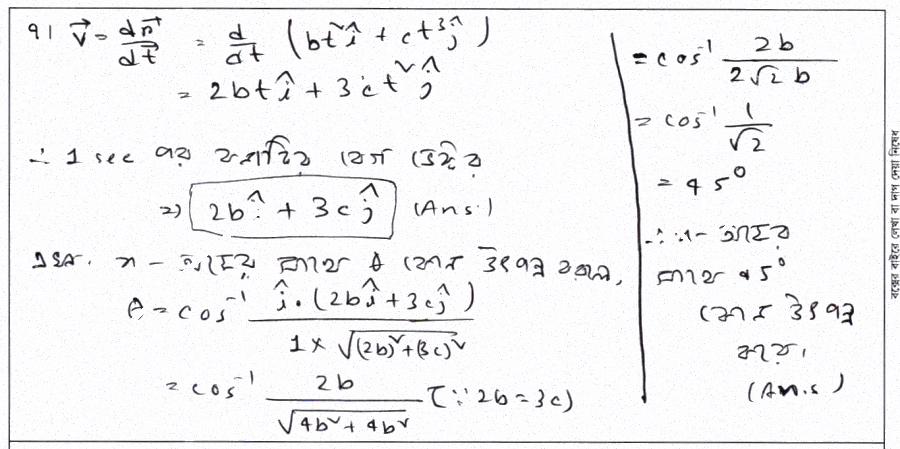 ৭। v⃗ = dr⃗/dt = d/dt (bt² î + ct³ ĵ)
= 2bt î + 3ct² ĵ
∴ 1 sec পর কণাটির বেগ ভেক্টর
⇒ 2b î + 3c ĵ (Ans:)
x - অক্ষের সাথে θ কোণ উৎপন্ন করলে,
θ = cos⁻¹ î·(2b î + 3c ĵ) / 1 × √(2b)² + (3c)²
= cos⁻¹ 2b / √4b² + 4b² [∵ 2b = 3c)
= cos⁻¹ 2b / 2√2 b
= cos⁻¹ 1/√2
= 45°
∴ x - অক্ষের
সাথে 45°
কোণ উৎপন্ন
করে।
(Ans.)
বক্সের বাইরে লেখা বা দাগ দেয়া নিষেধ